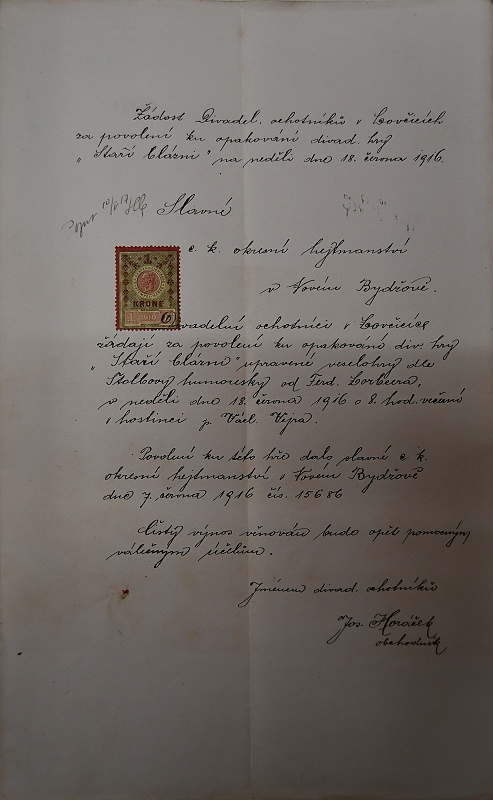 Žádost Divadel. ochotníků v Lovčicích
za povolení ku opakování divad. hry
„Staří blázni" na neděli dne 18. června 1916.
Slavné
c. k. okresní hejtmanství
v Novém Bydžově.
1
KRONE
1 1910 6
Divadelní ochotníci v Lovčicích
žádají za povolení ku opakování div. hry
„Staří blázni" upravené veselohry dle
Štolbovy humoresky od Ferd.
v neděli dne 18. června 1916 o 8. hod. večerní
v hostinci p. Václ. Vejra.
Povolení ku této hře dalo slavné c. k.
okresní hejtmanství v Novém Bydžově
dne 7. června 1916 čís. 15686
Čistý výnos věnován bude opět pomocným
válečným účelům.
Jménem divad. ochotníků
Jos. Horáček
obchodník